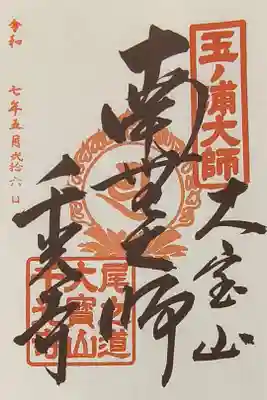 玉ノ浦大師
大宝山
南無大師
千光寺
大寶山
千光寺
令和
七年五月弐拾六日